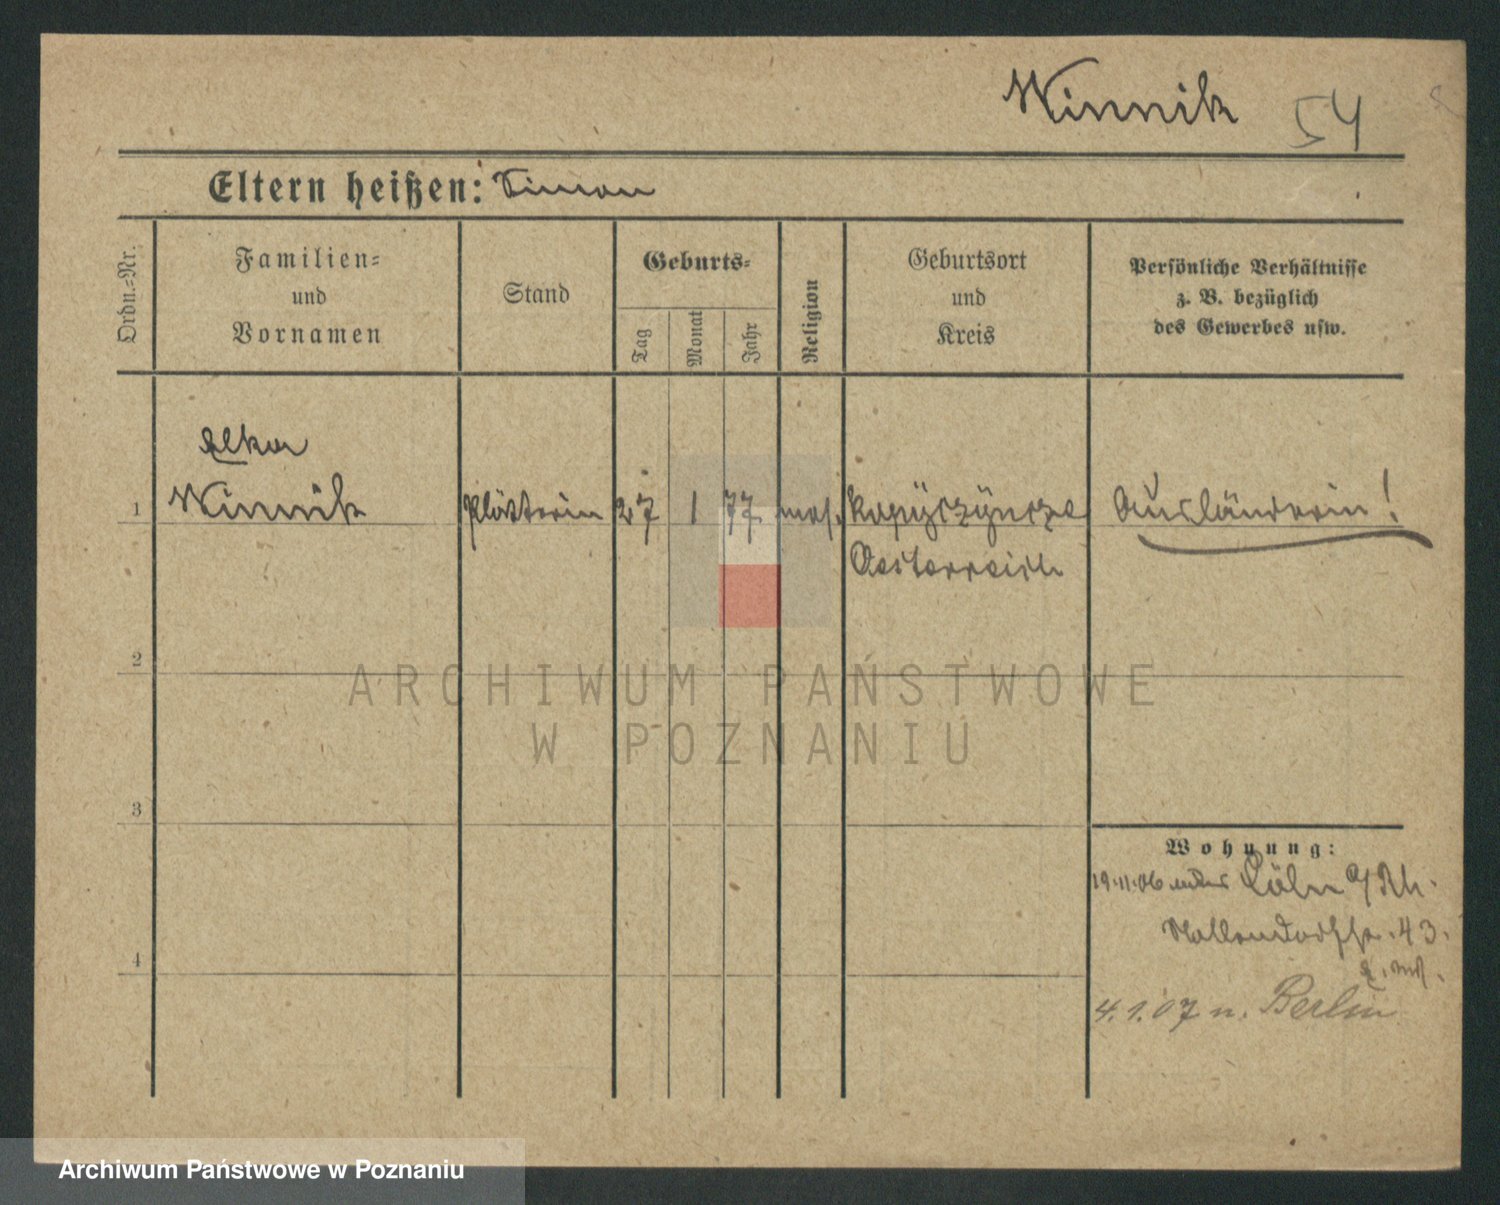 Winnik 54
Eltern heißen: Simon
Ordn.-Nr.
Familien-
und
Vornamen
Stand
Geburts-
Tag
Monat
Jahr
Religion
Geburtsort
und
Kreis
Persönliche Verhältnisse
z. B. bezüglich
des Gewerbes usw.
Elka
1 Winnik Plätterin 27 1 77 mos. Kopyczynce Ausländerin!
Oesterreich
2
ARCHIWUM PAŃSTWOWE
W POZNANIU
3
Wohnung:
19.11.06 Cöln a/Rh.
43.
4
4.1.07 n. Berlin
Archiwum Państwowe w Poznaniu